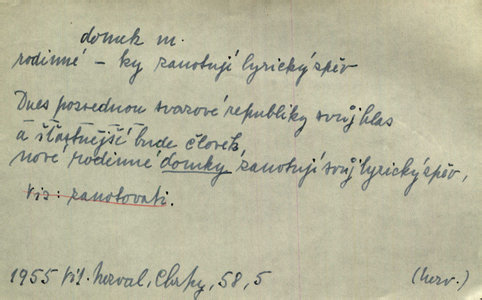 domek m.
rodinné – ky zanotují lyrický zpěv
Dnes pozvednou svarové republiky svůj hlas
a šťastnější bude člověk,
nové rodinné domky zanotují svůj lyrický zpěv,
viz: zanotovati.
1955 Vít. Nezval, Chrpy, 58, 5
(herv.)